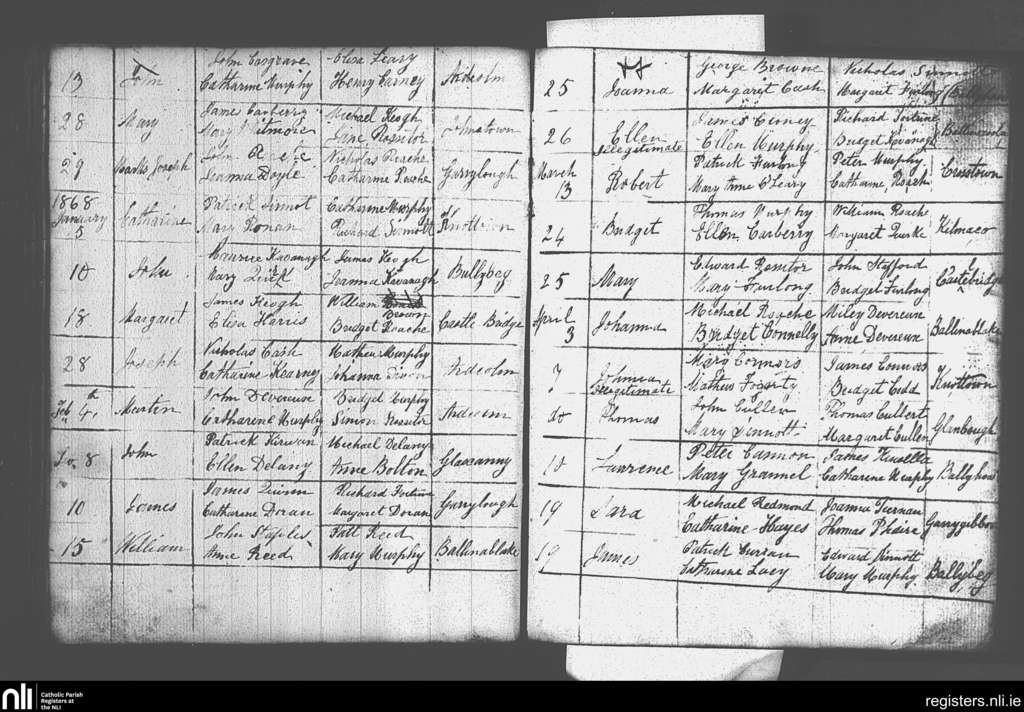 John Cosgrave Eliza Leary
13 John Catharine Murphy Henry Carney Ardcolm
James Carberry Michael Keogh
28 Mary Mary Jane Rossitor Johnstown
John Nicholas Roache
29 Joseph Joanna Doyle Catharine Roache Garrylough
1868 Patrick Sinnot Catharine Murphy
January 5 Catharine Mary Ronan Richard Sinnott Knottown
Maurice Kavanagh James Keogh
10 John Mary Quirk Joanna Kavanagh Ballybeg
James Keogh William
Brown
18 Margaret Eliza Harris Bridget Roache Castle Bridge
Nicholas Cash Mathew Murphy
28 Joseph Catharine Kearney Johanna Ardcolm
John Devereux Bridget Murphy
Feb 4th Martin Catharene Murphy Simon Rossitor Ardcolm
Patrick Kirwan Michael Delany
Do 8 John Ellen Delany Anne Bolton Glascanny
James Quinn Richard Fortune
10 James Catharine Doran Margaret Doran Garrylough
John Staples Patt Reed
15 William Anne Reed Mary Murphy Ballinablake
George Browne Nicholas Sinnott
25 Joanna Margaret Cash Margaret Furlong
James Cerney Richard Fortune
26 Ellen Ellen Murphy Bridget Kavanagh
Illegitimate
March Patrick Furlong Peter Murphy
13 Robert Mary Anne O'Leary Catharine Roach
Thomas Murphy William Roache
24 Bridget Ellen Carberry Margaret Quirke Kilmaco
Edward Rositor John Stafford
25 Mary Mary Furlong Bridget Furlong Castlebridge
April Michael Roache Miley Devereux
3 Johanna Bridget Connelly Anne Devereux Ballinablake
Mary Connors James Connors
7 Johanna Mathew Fogarty Bridget Codd Knottown
Illegitimate
do Thomas John Cullen Thomas Cullen
Mary Sinnott Margaret Cullen Glenbough
Peter Cannon James Kinsella
18 Lawrence Mary Grannel Catharine Murphy Ballyhow
Michael Redmond Joanna Tiernan
19 Sara Catharine Hayes Thomas Garrygibbon
Patrick Curran Edward Sinnott
19 James Catharine Lacy Mary Murphy Ballybeg
nli Catholic Parish
Registers at
the NLI
registers.nli.ie